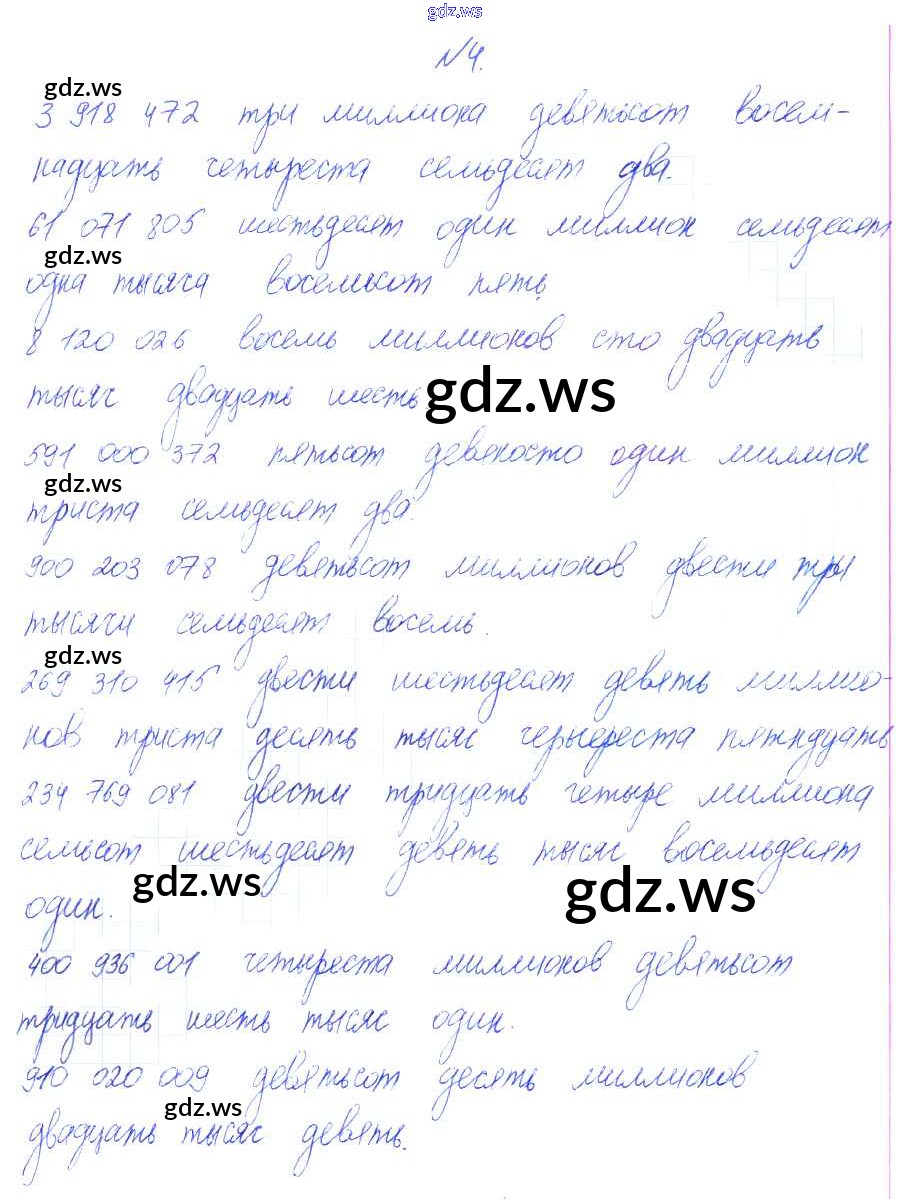 gdz.ws
№4.
gdz.ws
3 918 472 три миллиона девятьсот восем-
надцать четыреста семьдесят два.
61 071 805 шестьдесят один миллион семьдесят
gdz.ws
одна тысяча восемьсот пять
8 120 026 восемь миллионов сто двадцать
тысяч двадцать шесть
gdz.ws
591 000 372 пятьсот девяносто один миллион
gdz.ws
триста семьдесят два.
900 203 078 девятьсот миллионов двести три
тысячи семьдесят восемь.
gdz.ws
269 310 415 двести шестьдесят девять миллио-
нов триста десять тысяч черыереста пятндцать
234 769 081 двести тридцать четыре миллиона
семьсот шестьдесят девять тысяч восемьдесят
gdz.ws
gdz.ws
один.
400 936 001 четыреста миллионов девятьсот
тридцать шесть тысяч один.
910 020 009 девятьсот десять миллионов
gdz.ws
двадцать тысяч девять.